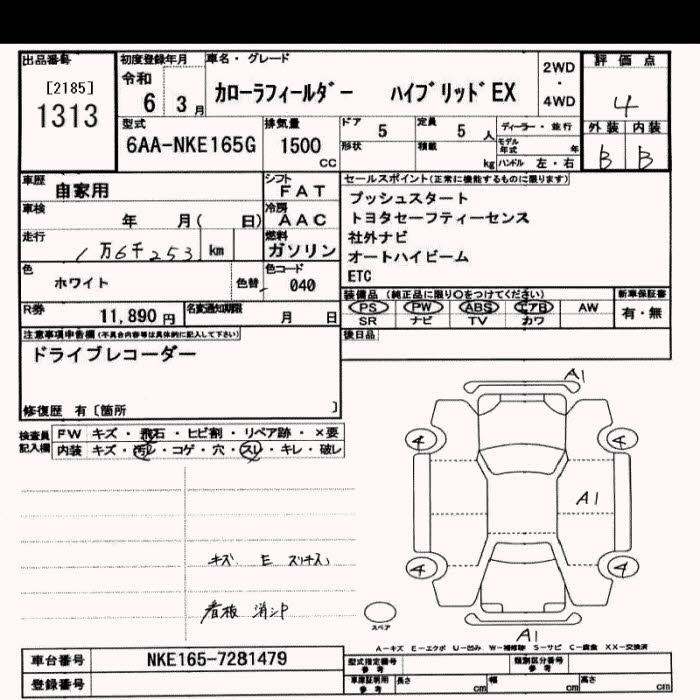 出品番号 初度登録年月 車名・グレード 2WD・4WD 評価点
[2185] 1313 令和 6 3月 カローラフィールダー ハイブリッドEX 4
型式 排気量 ドア 5 定員 5 人 ディーラー・並行 外装 内装
6AA-NKE165G 1500 CC 形状 積載 kg モデル年式 年 ハンドル 左・右 B B
車歴 自家用 シフト FAT セールスポイント(正常に機能するものに限ります)
車検 年 月( 日) 冷房 AAC プッシュスタート
トヨタセーフティーセンス
走行 1万6千253 km 燃料 ガソリン 社外ナビ
オートハイビーム
色 ホワイト 色替 色コード 040 ETC
R券 11,890円 名変通知期限 月 日 装備品 (純正品に限り○をつけてください) 新車保証書
PS PW ABS エアB AW 有・無
SR ナビ TV カワ
注意事項申告欄(不具合内容等は具体的に記入して下さい) 後日品
ドライブレコーダー
修復歴 有〔箇所 〕
検査員記入欄 FW キズ・飛石・ヒビ割・リペア跡・×要
内装 キズ・汚レ・コゲ・穴・スレ・キレ・破レ
A1
4 4
A1
4 4
キズ E スリキズ
看板 消シ
スペア
A1
A-キズ E-エクボ U-凹み W-補修跡 S-サビ C-腐食 XX-交換済
車台番号 NKE165-7281479 型式指定番号 参考 類別区分番号 参考
登録番号 車庫証明用 参考 長さ cm 幅 cm 高さ cm